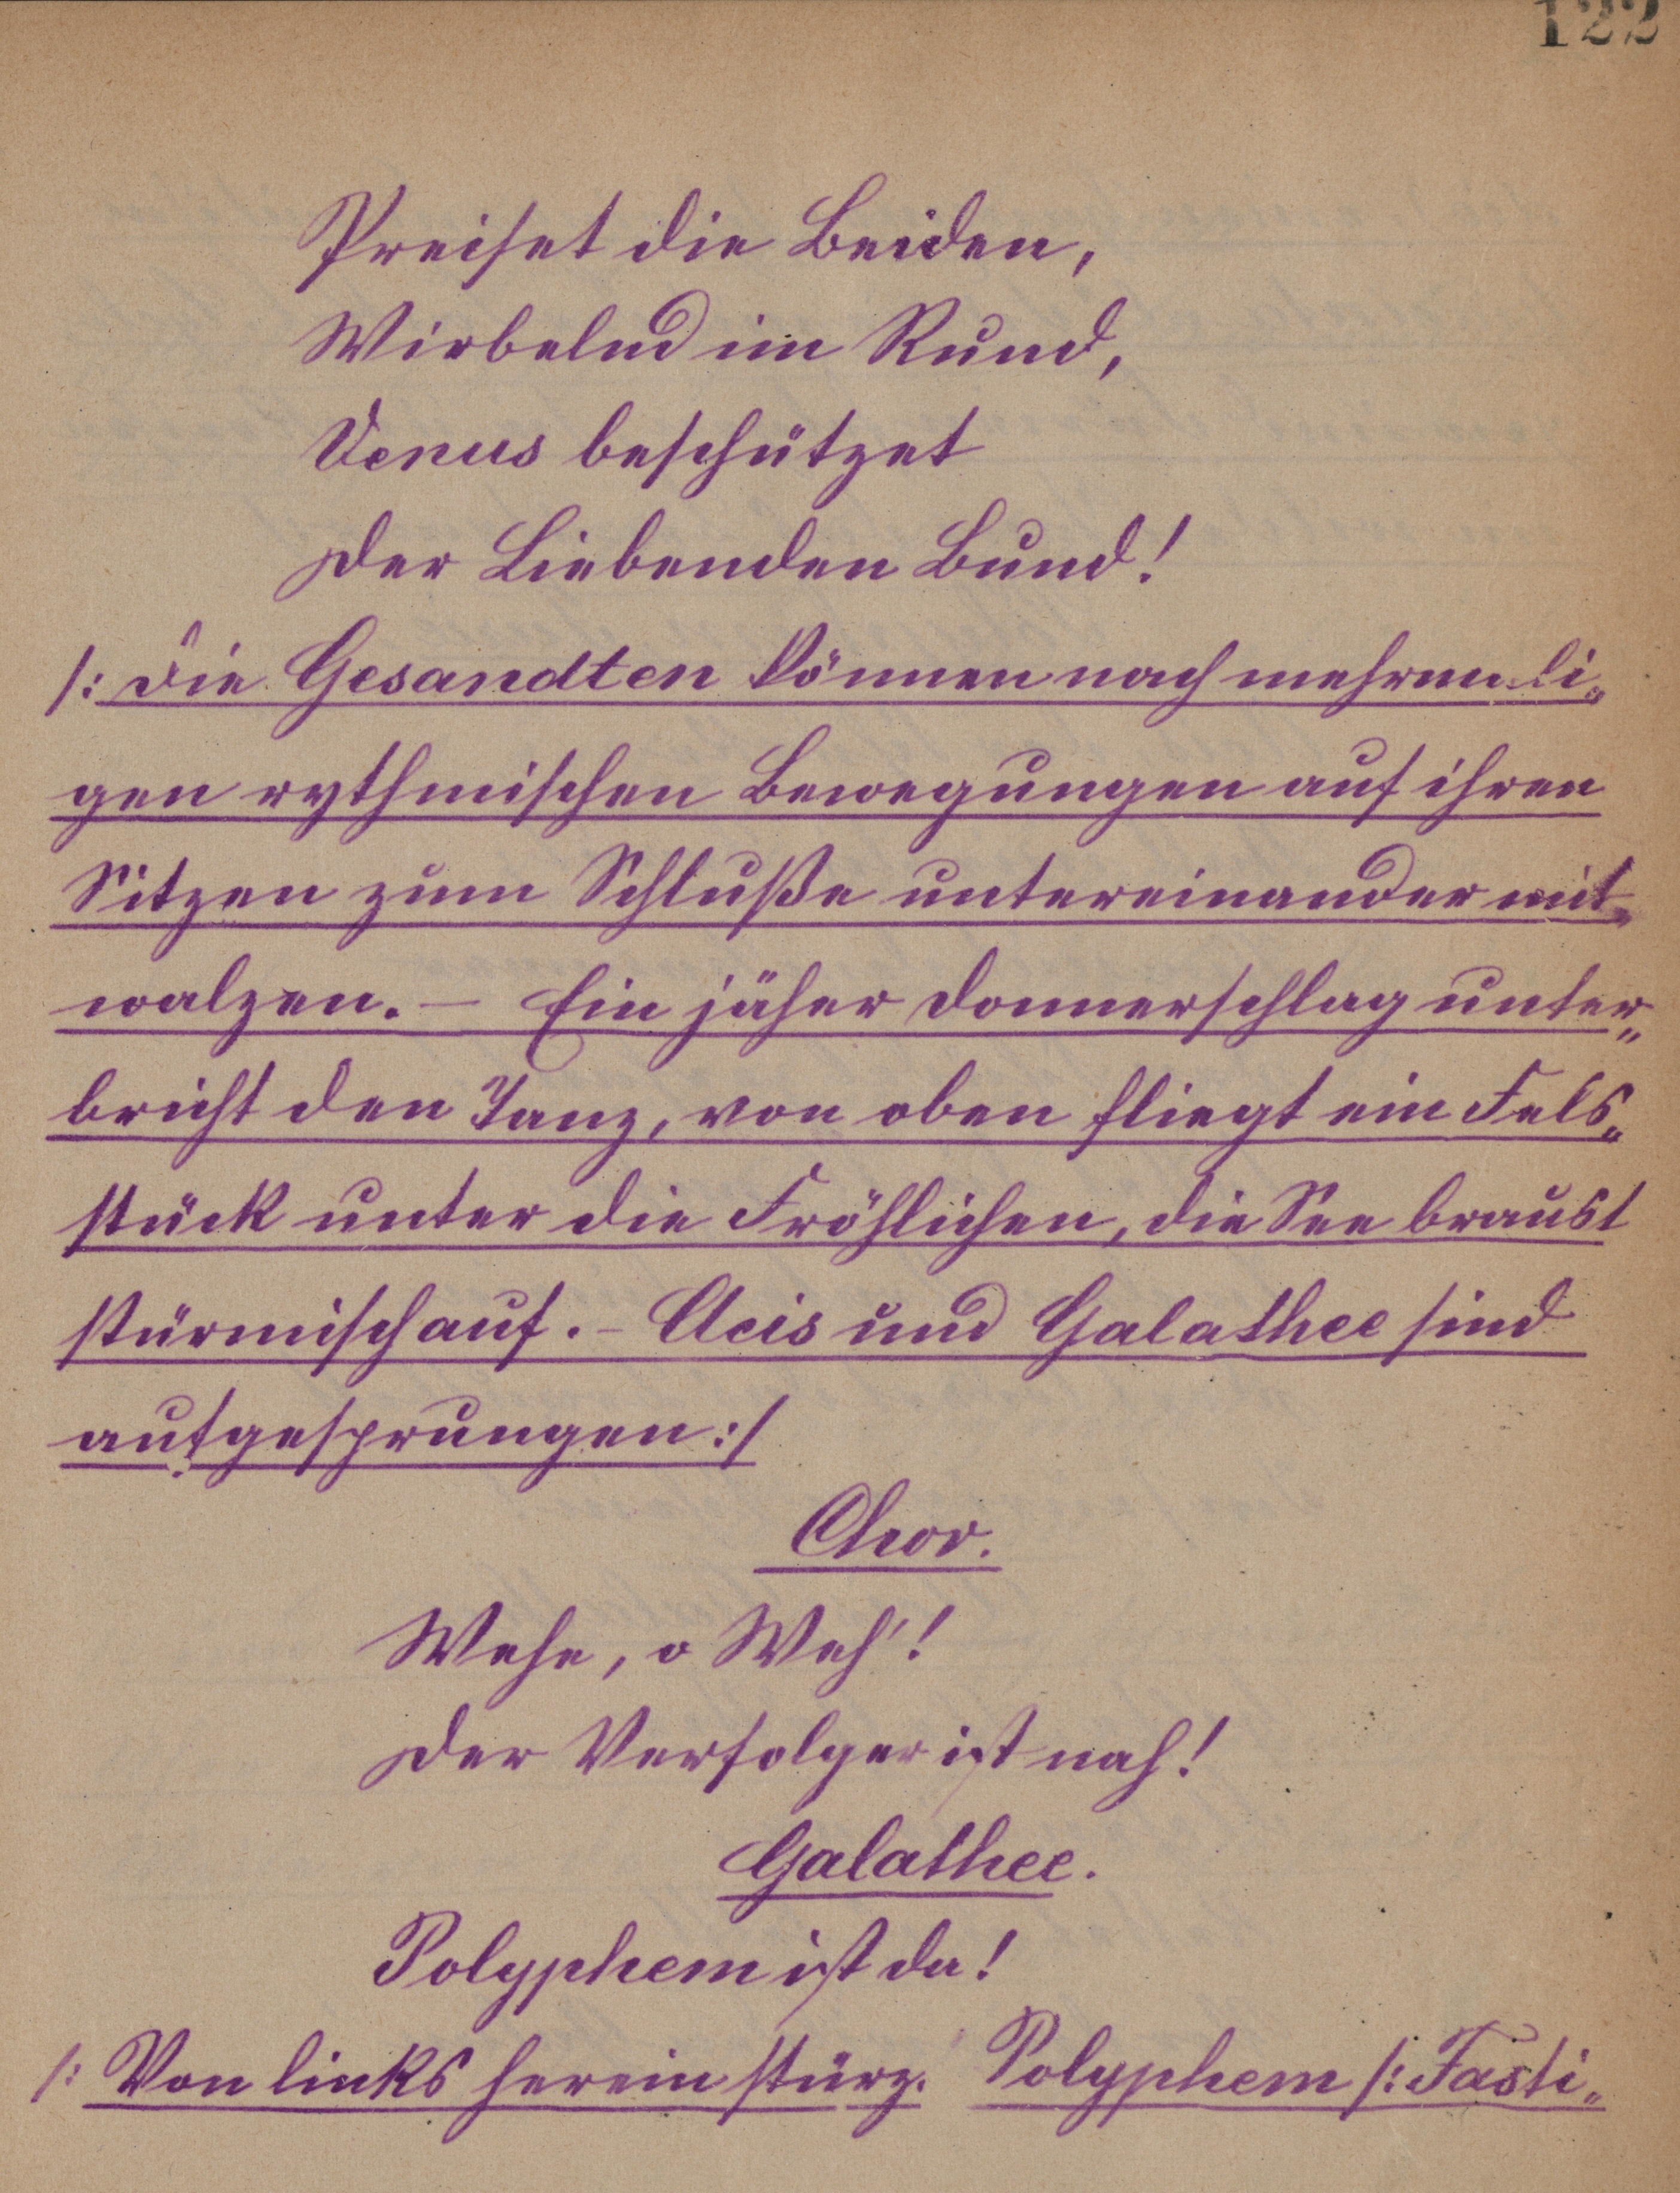 122
Preiset die Beiden,
Wirbelnd im Rund,
Venus beschützet
Der Liebenden Bund!
/: Die Gesandten können nach mehrma li„
gen rythmischen Bewegungen auf ihren
Sitzen zum Schluße untereinander mit„
walzen. – Ein jäher Donnerschlag unter„
bricht den Tanz, von oben fliegt ein Fels„
stück unter die Fröhlichen, die See braust
stürmisch auf. – Acis und Galathee sind
aufgesprungen :/
Chor.
Wehe, o Weh'!
Der Verfolger ist nah!
Galathee.
Polyphem ist da!
/: Von links herein stürz. Polyphem /: Fasti„